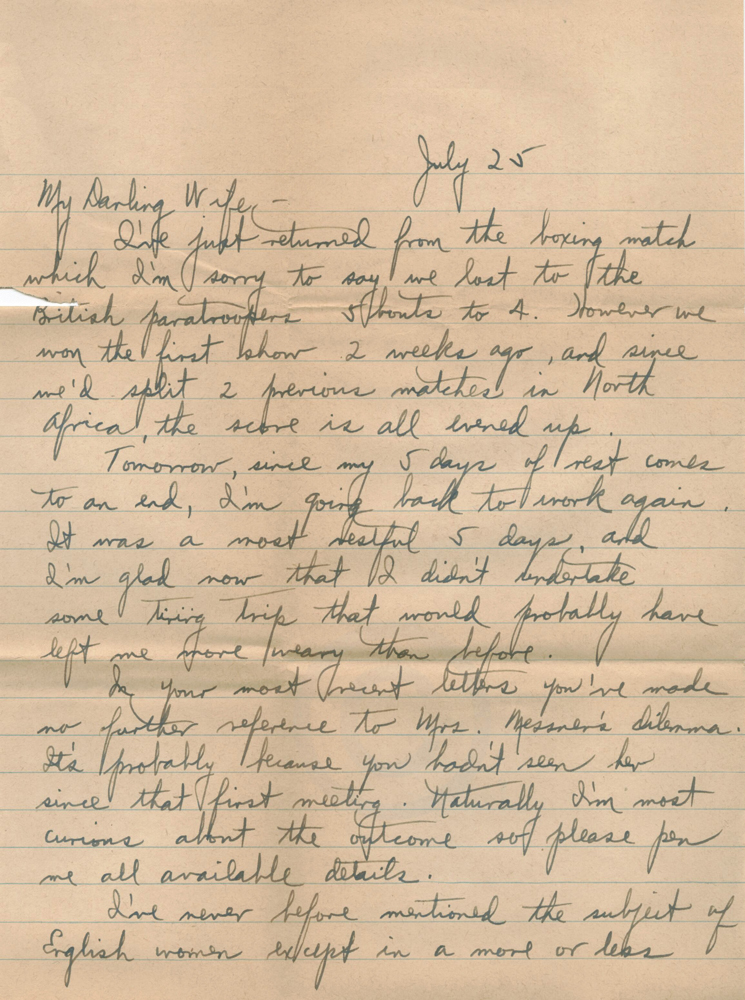 July 25
My Darling Wife, -
I've just returned from the boxing match
which I'm sorry to say we lost to the
British paratroopers 5 bouts to 4. However we
won the first show 2 weeks ago, and since
we'd split 2 previous matches in North
Africa, the score is all evened up.
Tomorrow, since my 5 days of rest comes
to an end, I'm going back to work again.
It was a most restful 5 days, and
I'm glad now that I didn't undertake
some tiring trip that would probably have
left me more weary than before.
In your most recent letters you've made
no further reference to Mrs. Messner's dilemma.
It's probably because you hadn't seen her
since that first meeting. Naturally I'm most
curious about the outcome so please pen
me all available details.
I've never before mentioned the subject of
English women except in a more or less